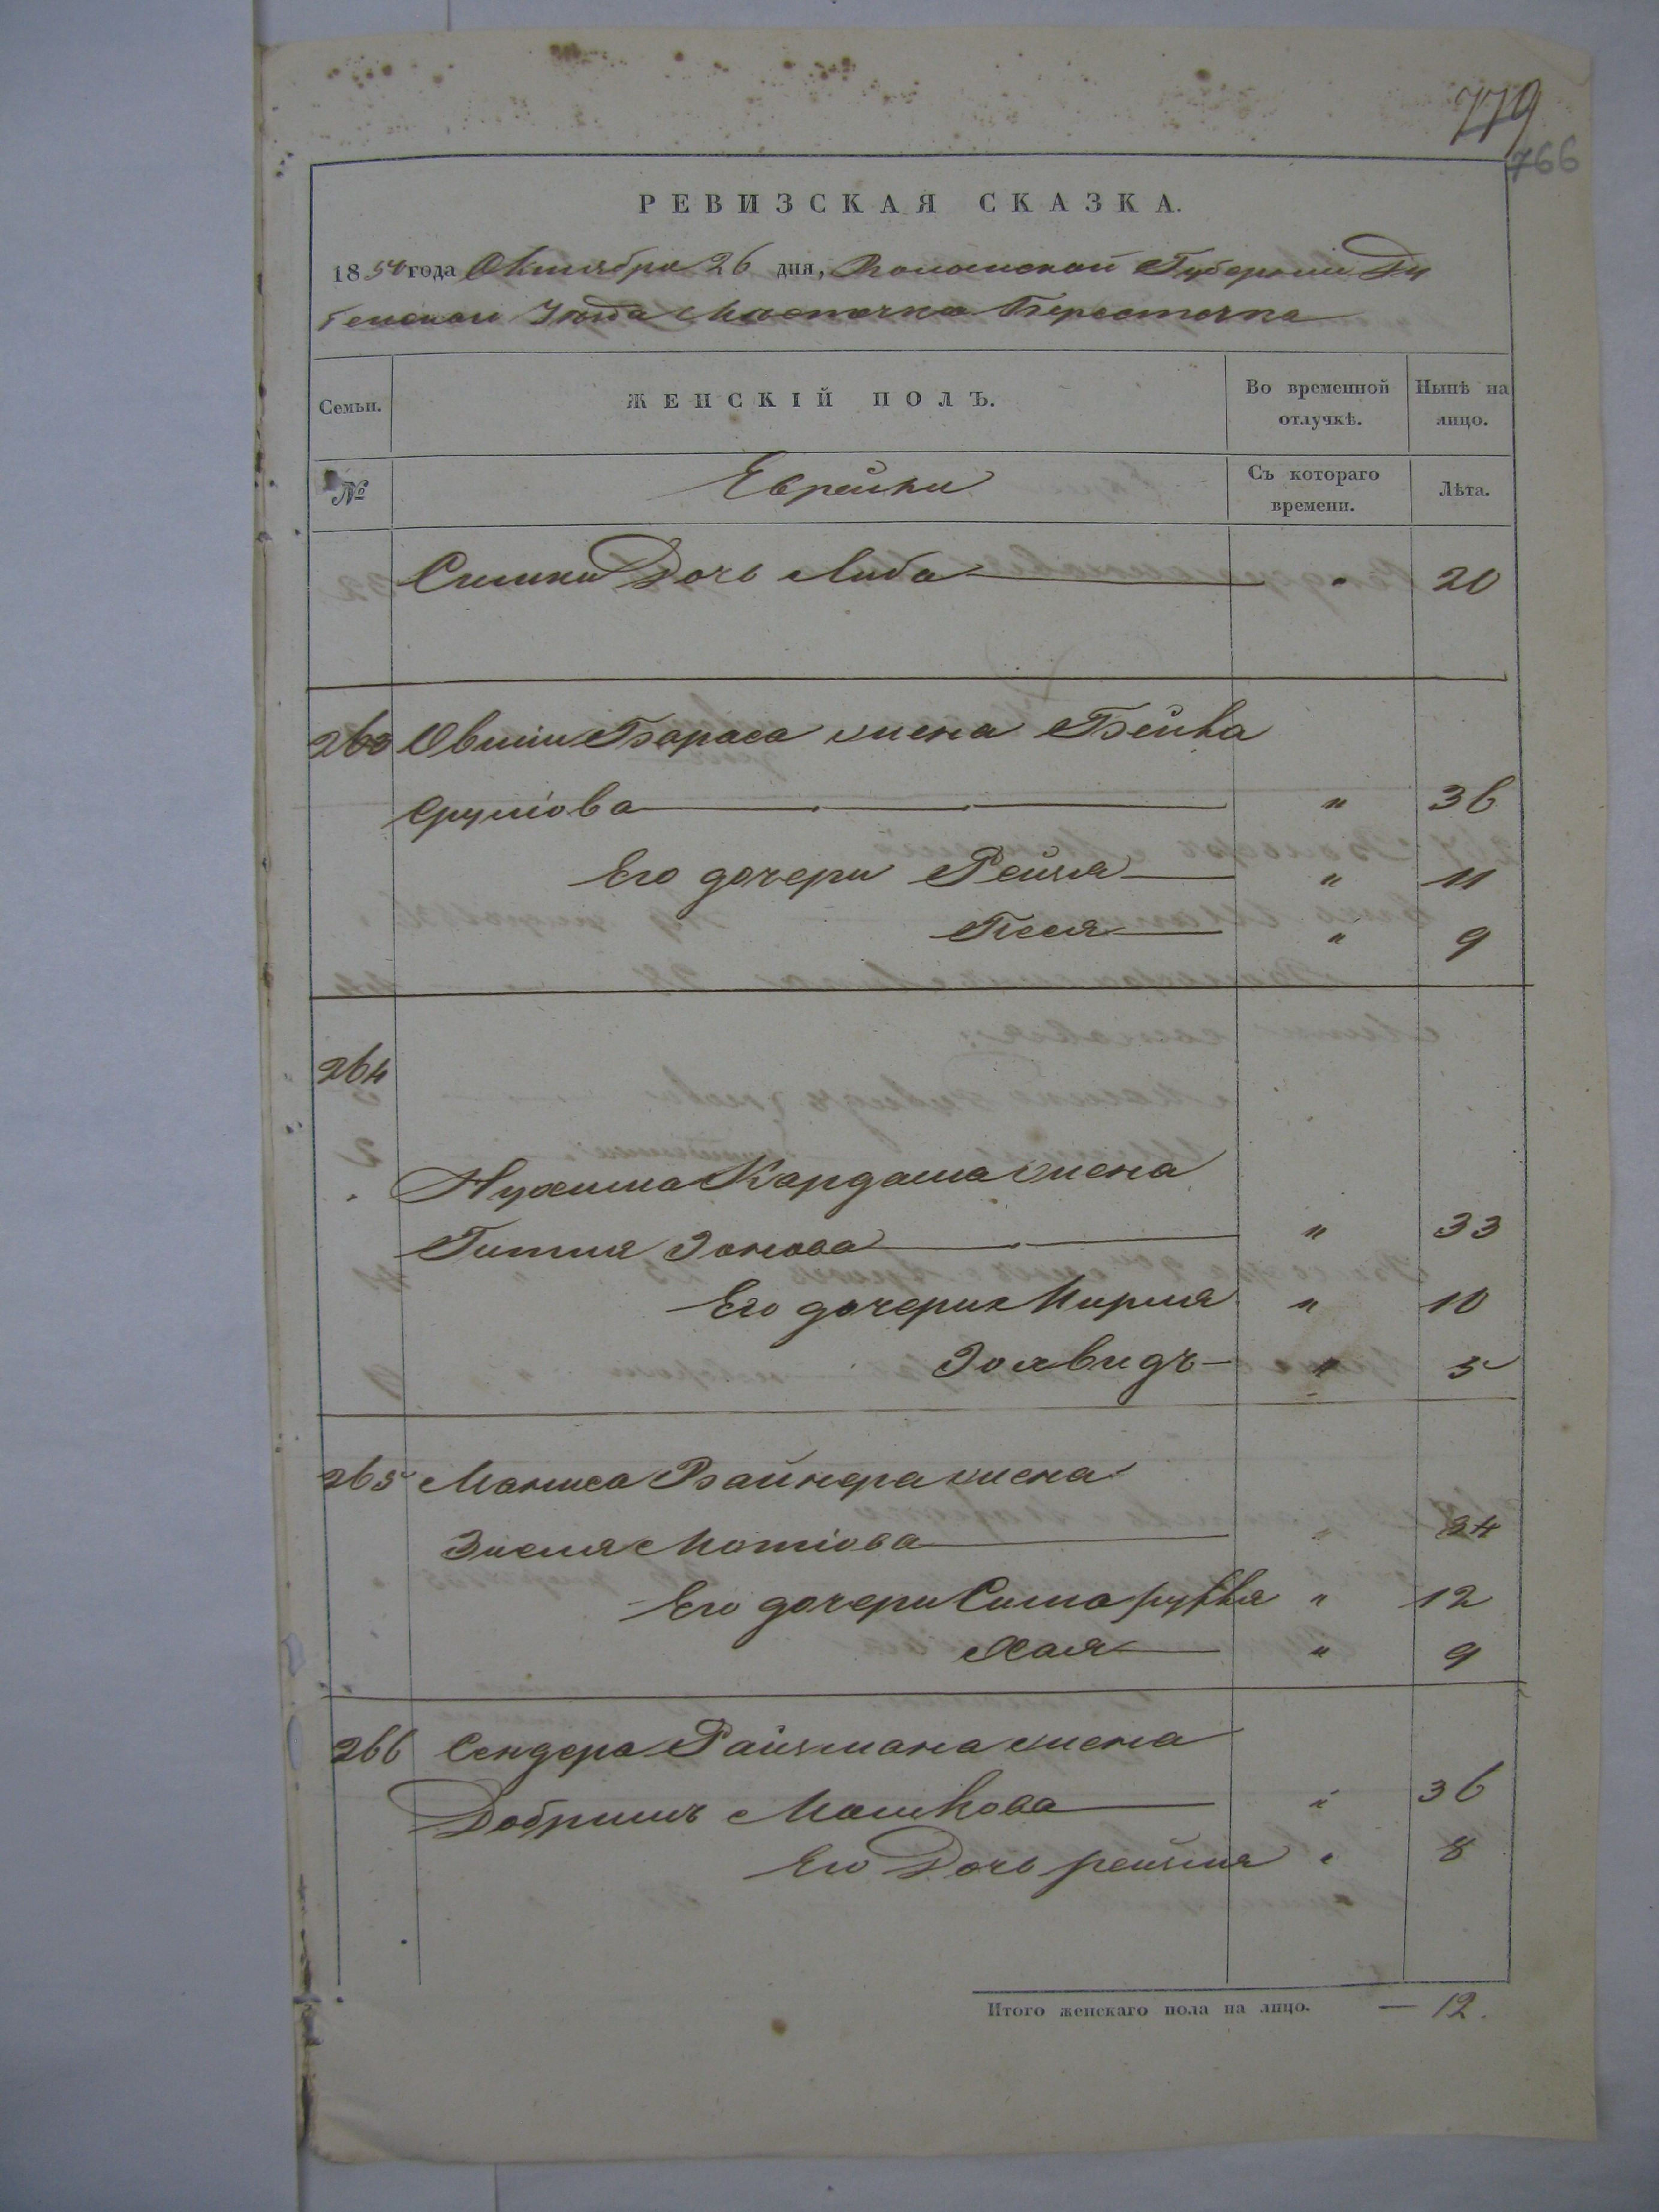 779
766
РЕВИЗСКАЯ СКАЗКА.
1854 года Октября 26 дня, Волынской Губернии Ду
бенскаго Уезда Местечка Берестечка
Семьи.
ЖЕНСКІЙ ПОЛЪ.
Во временной отлучкѣ.
Нынѣ на лицо.
№
Еврейки
Съ котораго времени.
Лѣта.
Симхи Дочь Либа " 20
263 Овшии Бараса жена Бейла
Срулiова " 36
Его дочери Рейзя " 11
Песя " 9
264
Нухима Кардаша жена
Гитля " 33
Его дочери Мирля " 10
" 5
265 Маниса Вайнера жена
Зисля Мотiова " 34
Его дочери Сима " 12
Хая " 9
266 Сендера Райзмана жена
Добришъ Машкова " 36
Его Дочь рейзля " 8
Итого женскаго пола на лицо. — 12.